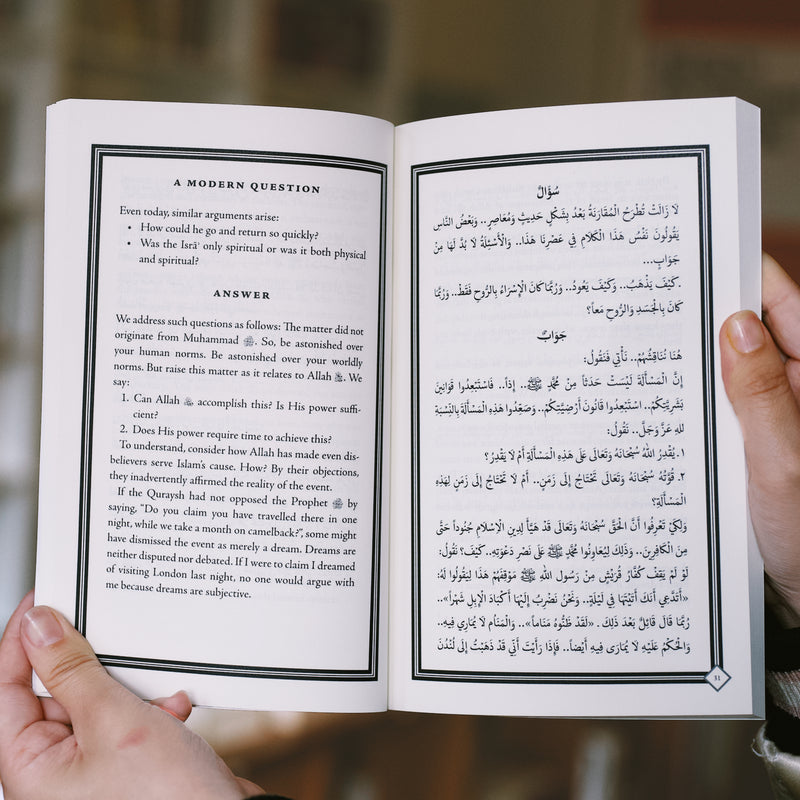 A MODERN QUESTION
Even today, similar arguments arise:
• How could he go and return so quickly?
• Was the Isrāʾ only spiritual or was it both physical
and spiritual?
ANSWER
We address such questions as follows: The matter did not
originate from Muhammad ﷺ. So, be astonished over
your human norms. Be astonished over your worldly
norms. But raise this matter as it relates to Allah. We
say:
1. Can Allah accomplish this? Is His power suffi-
cient?
2. Does His power require time to achieve this?
To understand, consider how Allah has made even dis-
believers serve Islam’s cause. How? By their objections,
they inadvertently affirmed the reality of the event.
If the Quraysh had not opposed the Prophet ﷺ by
saying, “Do you claim you have travelled there in one
night, while we take a month on camelback?”, some might
have dismissed the event as merely a dream. Dreams are
neither disputed nor debated. If I were to claim I dreamed
of visiting London last night, no one would argue with
me because dreams are subjective.
سُؤَالٌ
لَا زَالَتْ تُطْرَحُ الْمُقَارَنَةُ بَعْدُ بِشَكْلٍ حَدِيثٍ وَمُعَاصِرٍ.. وَبَعْضُ النَّاسِ
يَقُولُونَ نَفْسُ هَذَا الْكَلَامِ فِي عَصْرِنَا هَذَا.. وَالْأَسْئِلَةُ لَا بُدَّ لَهَا مِنْ
جَوَابٍ...
.كَيْفَ يَذْهَبُ.. وَكَيْفَ يَعُودُ.. وَرُبَّمَا كَانَ الْإِسْرَاءُ بِالرُّوحِ فَقَطْ.. وَرُبَّمَا
كَانَ بِالْجَسَدِ وَالرُّوحِ مَعاً؟
جَوَابٌ
هُنَا نُنَاقِشُهُمْ.. نَأْتِي فَنَقُولُ:
إِنَّ الْمَسْأَلَةَ لَيْسَتْ حَدَثاً مِنْ مُحَمَّدٍ ﷺ.. إِذاً.. فَاسْتَبْعِدُوا قَوَانِينَ
بَشَرِيَّتِكُمْ.. اسْتَبْعِدُوا قَانُونَ أَرْضِيَّتِكُمْ.. وَصَعِّدُوا هَذِهِ الْمَسْأَلَةَ بِالنِّسْبَةِ
للهِ عَزَّ وَجَلَّ.. نَقُولُ:
١. يُقْدِرُ اللهُ سُبْحَانَهُ وَتَعَالَى عَلَى هَذِهِ الْمَسْأَلَةِ أَمْ لَا يَقْدِرُ؟
٢. قُوَّتُهُ سُبْحَانَهُ وَتَعَالَى تَحْتَاجُ إِلَى زَمَنٍ.. أَمْ لَا تَحْتَاجُ إِلَى زَمَنٍ لِهَذِهِ
الْمَسْأَلَةِ؟
وَلِكَيْ تَعْرِفُوا أَنَّ الْحَقَّ سُبْحَانَهُ وَتَعَالَى قَدْ هَيَّأَ لِدِينِ الْإِسْلَامِ جُنُوداً حَتَّى
مِنَ الْكَافِرِينَ.. وَذَلِكَ لِيُعَاوِنُوا مُحَمَّدٍ ﷺ عَلَى نَصْرِ دَعْوَتِهِ.. كَيْفَ؟ نَقُولُ:
لَوْ لَمْ يَقِفْ كُفَّارُ قُرَيْشٍ مِنْ رَسُولِ اللهِ ﷺ مَوْقِفَهُمْ هَذَا لِيَقُولُوا لَهُ:
«أَتَدَّعِي أَنَّكَ أَتَيْتَهَا فِي لَيْلَةٍ.. وَنَحْنُ نَضْرِبُ إِلَيْهَا أَكْبَادَ الْإِبِلِ شَهْراً»..
رُبَّمَا قَالَ قَائِلٌ بَعْدَ ذَلِكَ.. «لَقَدْ ظَنُّوهُ مَنَاماً».. وَالْمَنَامُ لَا يُمَارِي فِيهِ..
وَالْحُكْمُ عَلَيْهِ لَا يُمَارَى فِيهِ أَيْضاً.. فَإِذَا رَأَيْتَ أَنِّي قَدْ ذَهَبْتُ إِلَى لُنْدُنَ
31